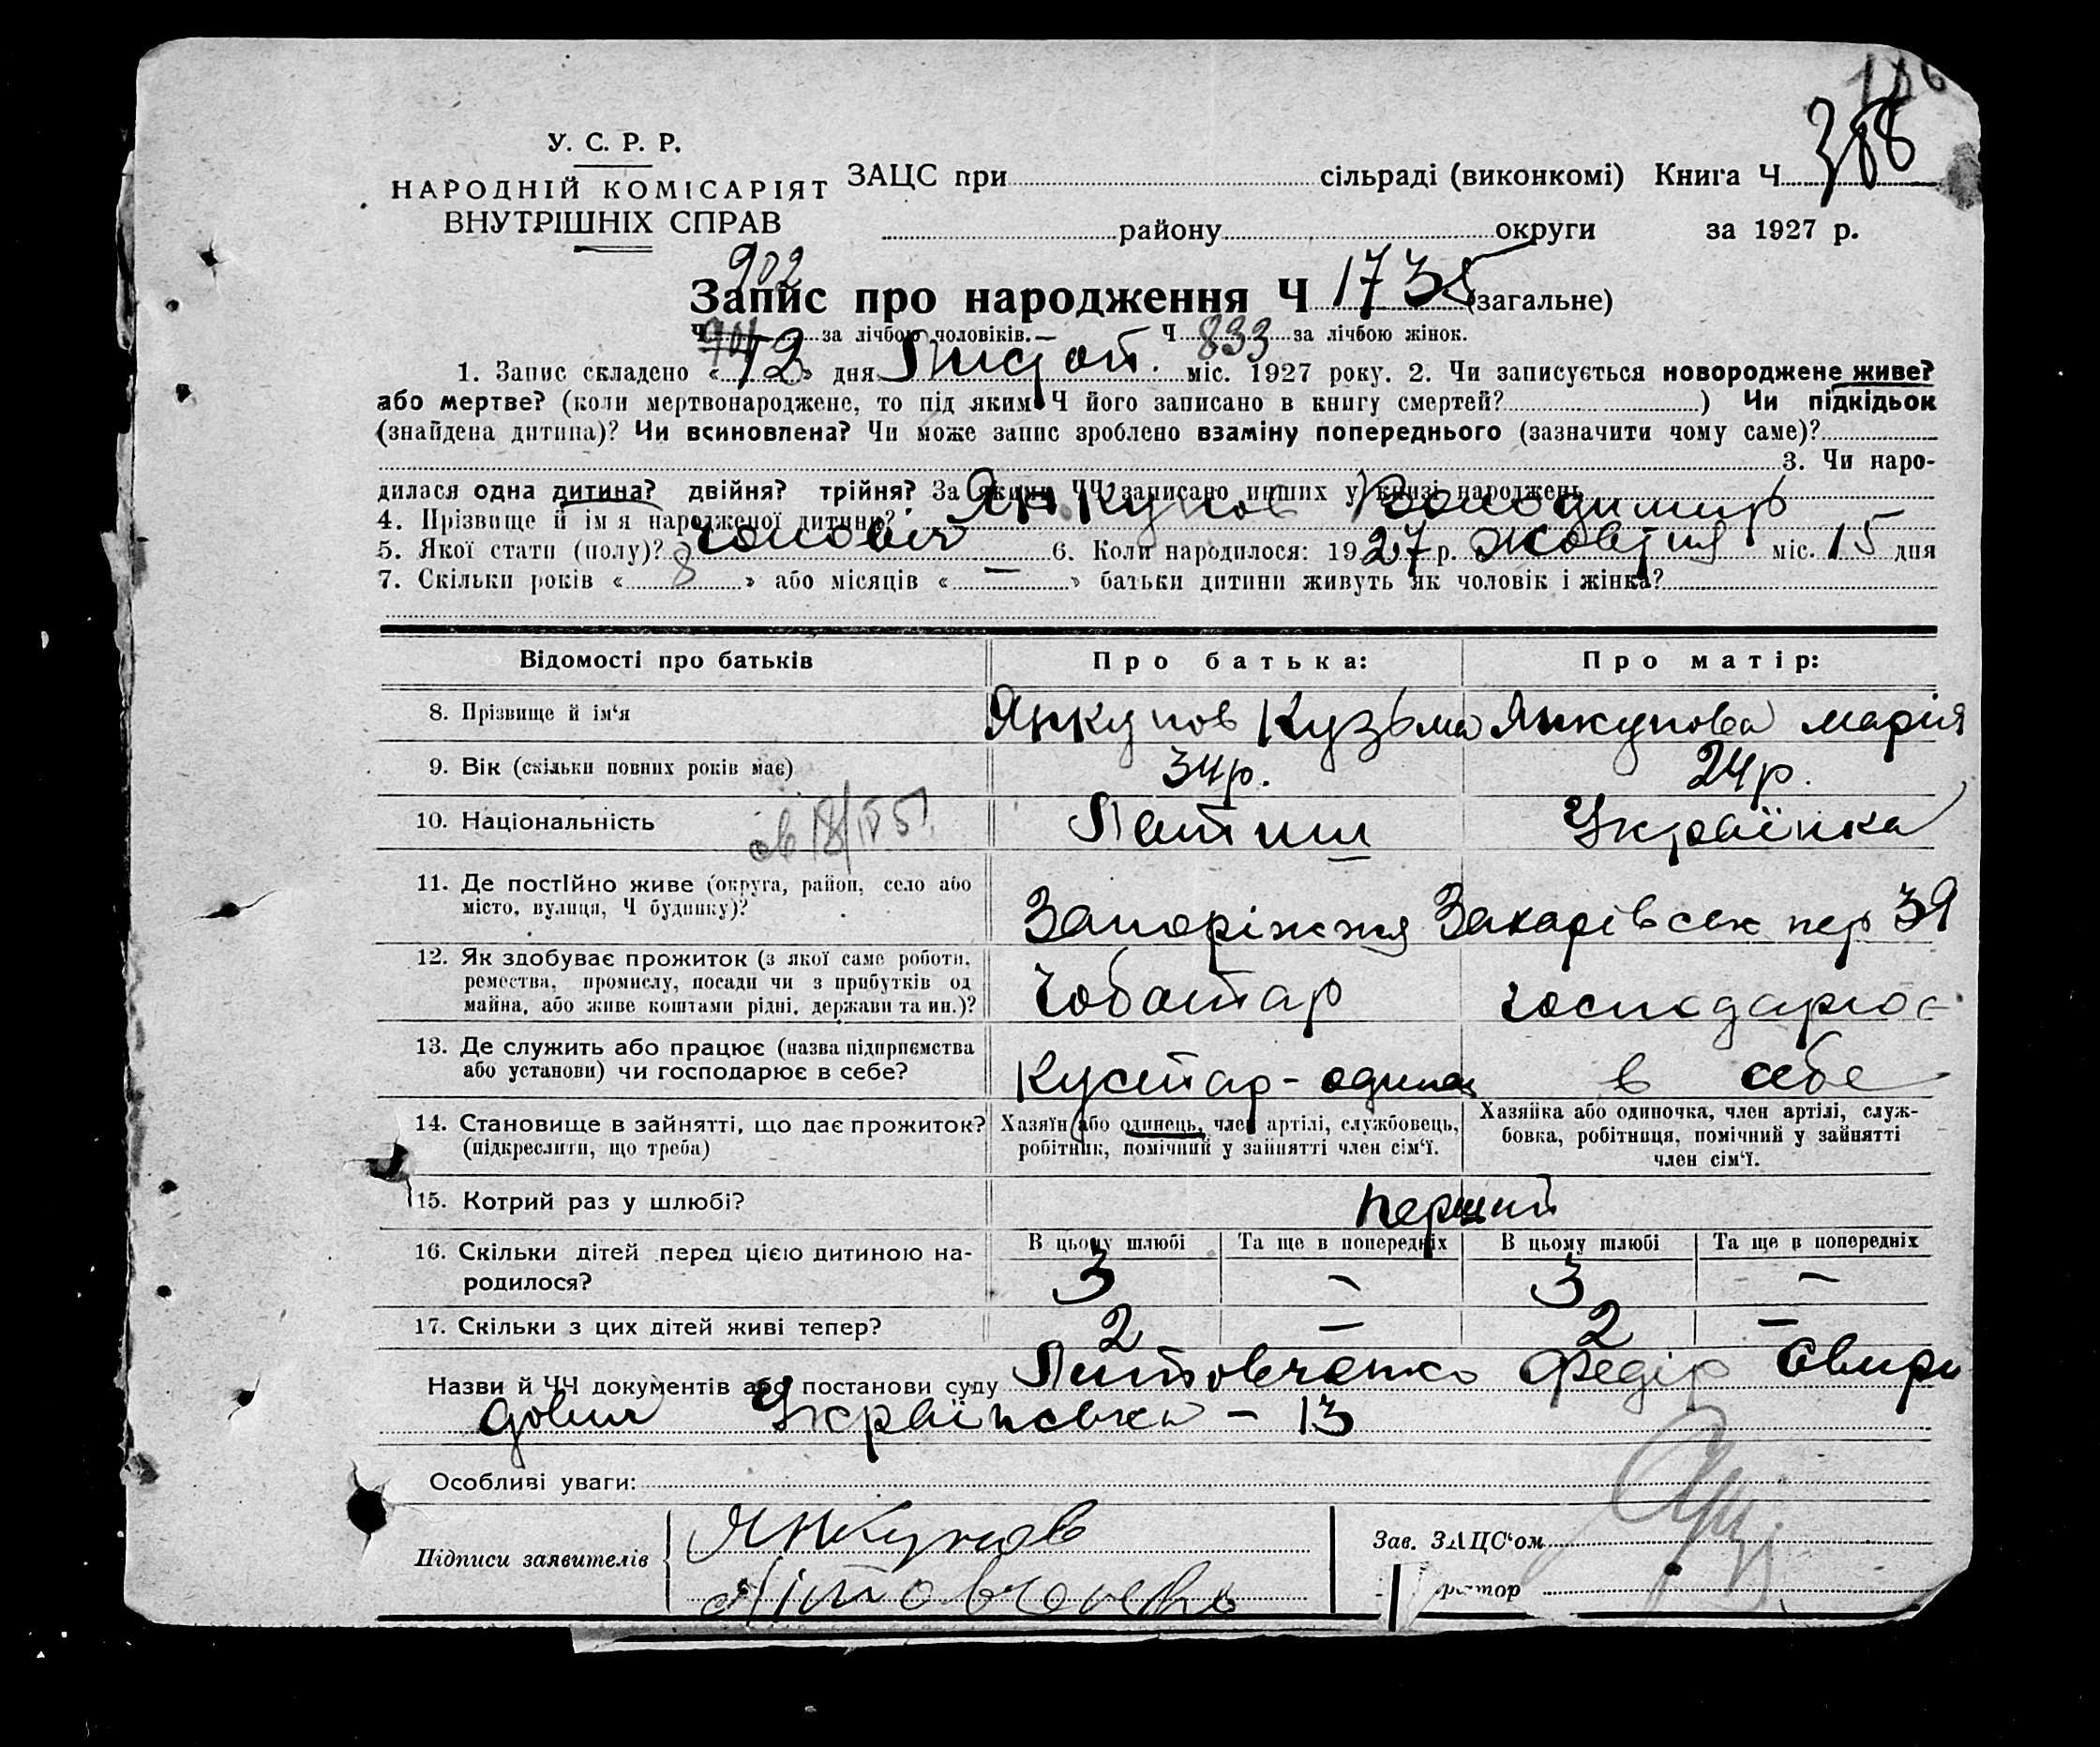 386
У. С. Р. Р.
НАРОДНІЙ КОМІСАРІЯТ
ВНУТРІШНІХ СПРАВ
ЗАЦС при сільраді (виконкомі) Книга Ч 388
району округи за 1927 р.
902
Запис про народження Ч 1735 (загальне)
Ч 901 за лічбою чоловіків.— Ч 833 за лічбою жінок.
1. Запис складено « 12 » дня Листоп. міс. 1927 року. 2. Чи записується новороджене живе?
або мертве? (коли мертвонароджене, то під яким Ч його записано в книгу смертей? ) Чи підкідьок
(знайдена дитина)? Чи всиновлена? Чи може запис зроблено взаміну попереднього (зазначити чому саме)?
3. Чи наро-
дилася одна дитина? двійня? трійня? За якими ЧЧ записано инших у книзі народжень
4. Прізвище й ім'я народженої дитини? Янкунов Володимир
5. Якої стати (полу)? чоловіч 6. Коли народилося: 1927 р. Жовтня міс. 15 дня
7. Скільки років « 8 » або місяців « — » батьки дитини живуть як чоловік і жінка?
Відомості про батьків Про батька: Про матір:
8. Прізвище й ім'я Янкунов Кузьма Янкунова Марія
9. Вік (скільки повних років має) 34р. 24р.
10. Національність Латиш Українка
11. Де постійно живе (округа, район, село або
місто, вулиця, Ч будинку)? Запоріжжя Захарівськ пер 39
12. Як здобуває прожиток (з якої саме роботи,
ремества, промислу, посади чи з прибутків од
майна, або живе коштами рідні, держави та ин.)? Чоботар господарює
13. Де служить або працює (назва підприємства
або установи) чи господарює в себе? Кустар-одинак в себе
14. Становище в зайнятті, що дає прожиток?
(підкреслити, що треба)
Хазяїн або одинець, член артілі, службовець,
робітник, помічний у зайнятті член сім'ї.
Хазяйка або одиночка, член артілі, служ-
бовка, робітниця, помічний у зайнятті
член сім'ї.
15. Котрий раз у шлюбі? перший
16. Скільки дітей перед цією дитиною на-
родилося?
В цьому шлюбі Та ще в попередніх В цьому шлюбі Та ще в попередніх
3 — 3 —
17. Скільки з цих дітей живі тепер? 2 — 2 —
Назви й ЧЧ документів або постанови суду Литовченко Федір Свири
дович Українська – 13
Особливі уваги:
Підписи заявителів Янкунов
Літовченко
Зав. ЗАЦС'ом